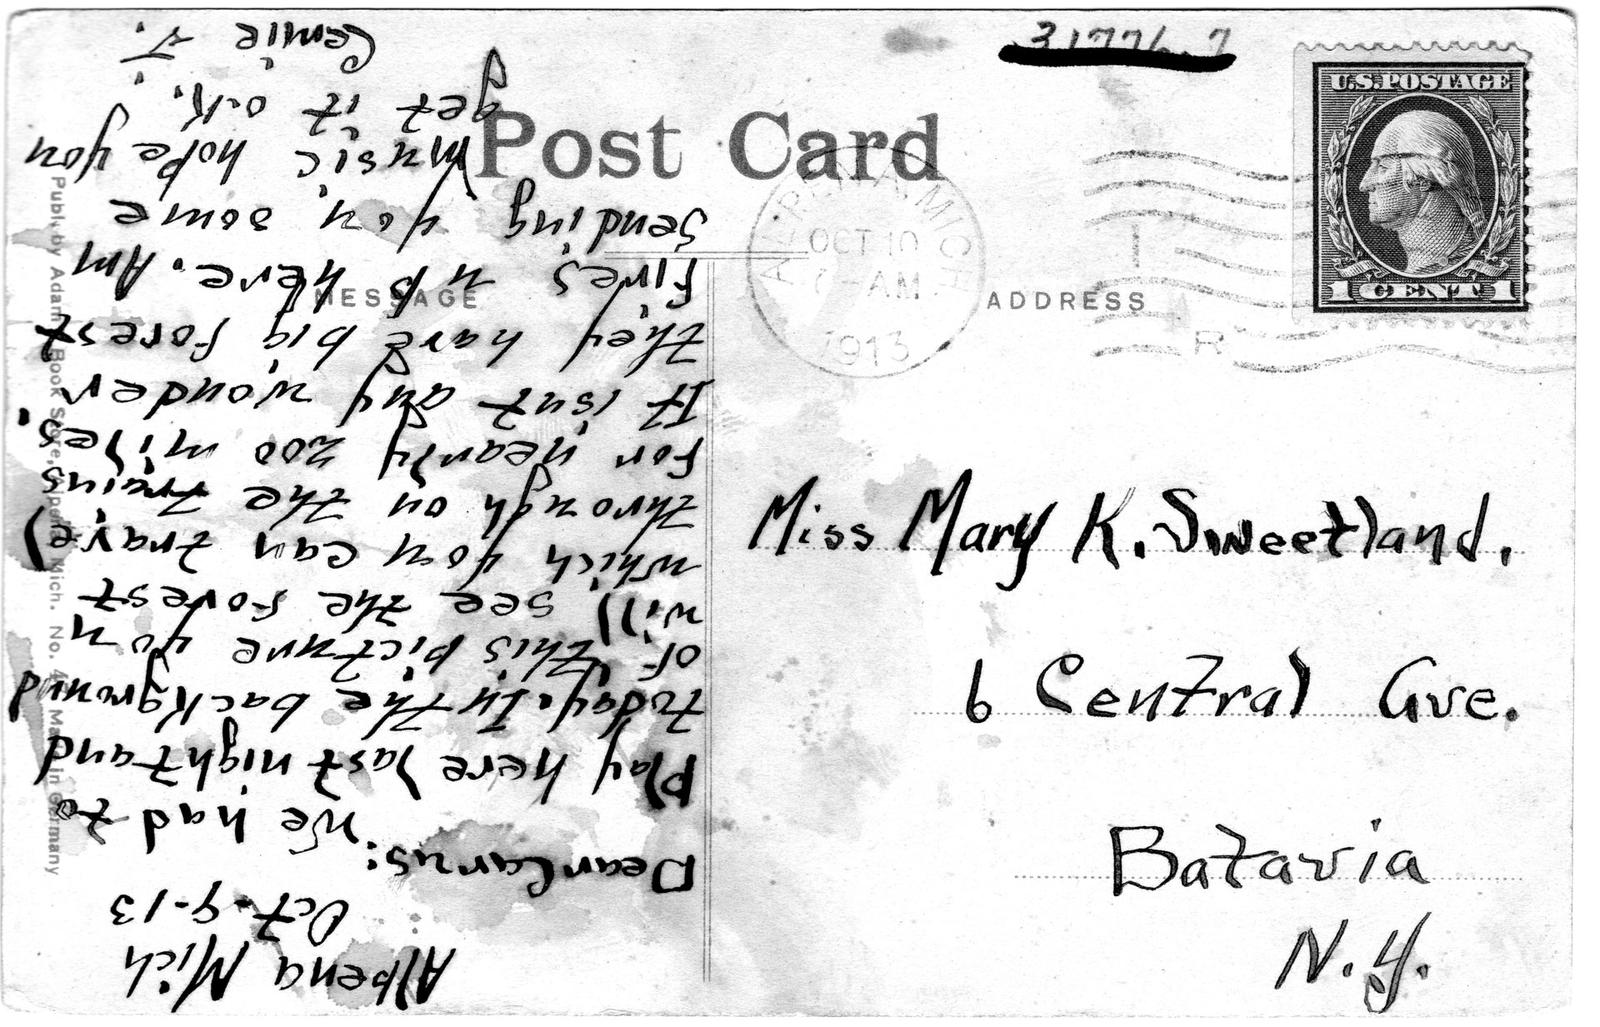 31776.7
U.S. POSTAGE
1 CENT 1
Post Card
ALPENA, MICH
OCT 10
7-AM
1913
MESSAGE
ADDRESS
R
Miss Mary K. Sweetland.
6 Central Ave.
Batavia
N.Y.
Alpena Mich
Oct-9-13
Dear
We had to
play here last night and
today. In the background
of this picture you
will see the forest
which you can travel
through on the trains
for nearly 200 miles.
It isnt any wonder
they have big forest
fires up here. Am
sending you some
music hope you
get it o.k.
Publ. by Adam Book Store, Alpena, Mich. No. Made in Germany